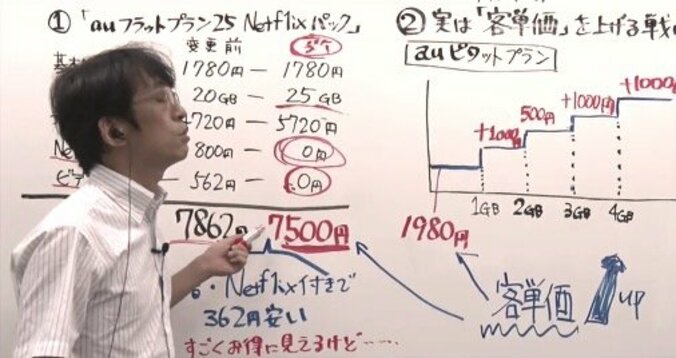 ①「auフラットプラン25 Netflixパック」
変更前
1780円 ー 1780円
20GB ー 25GB
4720円 ー 5720円
800円 ー 0円
562円 ー 0円
7862円 7500円
Netflix付きで
362円安い
すごくお得に見えるけど……
②実は「客単価」を上げる戦
auピタットプラン
+1000円
500円
+1000円
+1000円
1GB 2GB 3GB 4GB
1980円
客単価 UP